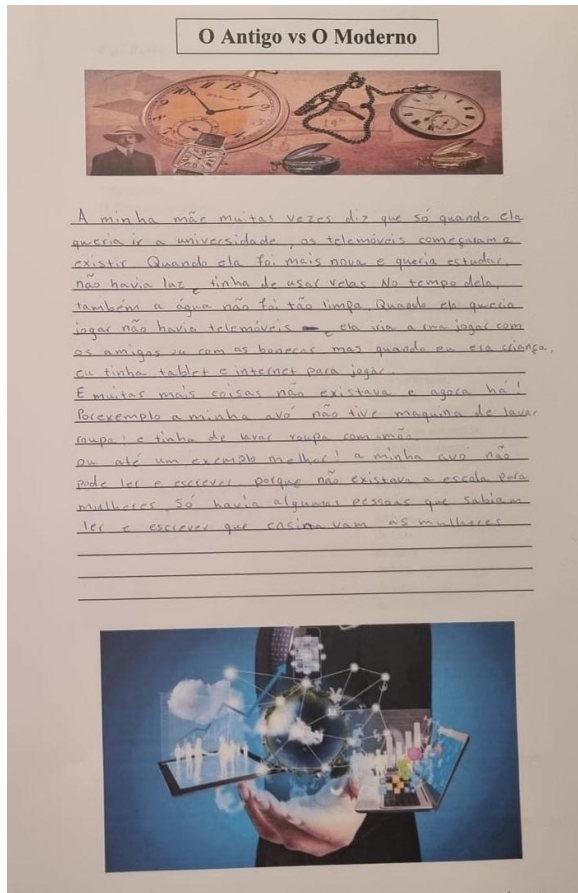 O Antigo vs O Moderno
A minha mãe muitas vezes diz que só quando ela
queria ir a universidade, os telemóveis começaram a
existir. Quando ela foi mais nova e queria estudar,
não havia luz e tinha de usar velas. No tempo dela,
também a água não foi tão limpa. Quando ela queria
jogar não havia telemóveis e ela iria a rua jogar com
os amigos ou com as bonecas mas quando eu era criança,
eu tinha tablet e internet para jogar.
E muitas mais coisas não existava e agora há!
Por exemplo a minha avó não tive maquina de lavar
roupa! e tinha de lavar roupa com mão.
ou até um exemplo melhor! a minha avó não
pode ler e escrever, porque não existava a escola para
mulheres. Só havia algumas pessoas que sabiam
ler e escrever que ensinavam as mulheres